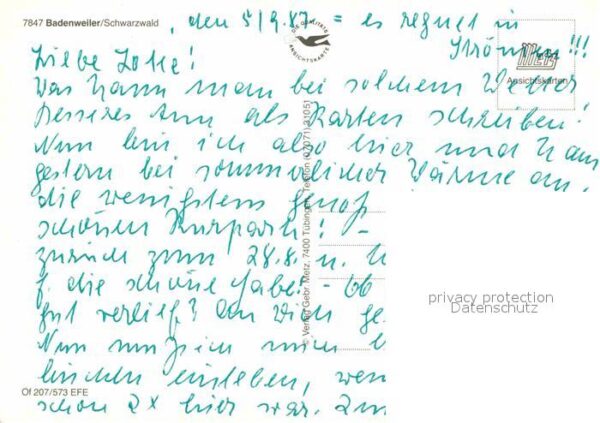 7847 Badenweiler/Schwarzwald , den 5/9.87 = es regnet in
Strömen!!!
DIE QUALITÄTS ANSICHTSKARTE
Metz
Ansichtskarten
Liebe
Was kann man bei solchem Wetter
besseres tun als Karten schreiben!
Nun bin ich also hier und kam
gestern bei sommerlicher Wärme an.
die wenigstens
schönen Kurpark! -
zurück zum 28.8. u.
f. die schöne Gabe! - Ob
gut verlief? An Dich
Nun muß ich mich
bischen einleben,
schon 2x hier war.
© Verlag Gebr. Metz, 7400 Tübingen, Telefon (07071) 31051
privacy protection
Datenschutz
Of 207/573 EFE